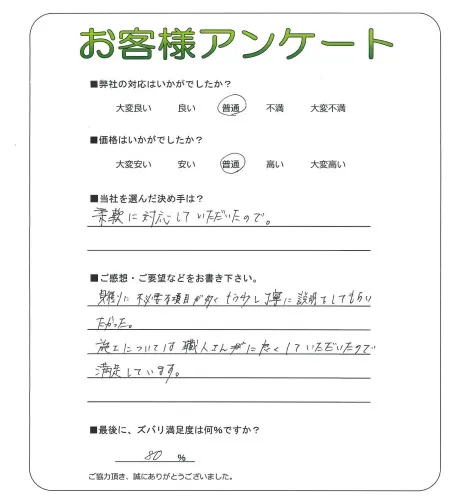 お客様アンケート
■弊社の対応はいかがでしたか？
大変良い 良い 普通 不満 大変不満
■価格はいかがでしたか？
大変安い 安い 普通 高い 大変高い
■当社を選んだ決め手は？
柔軟に対応していただいたので。
■ご感想・ご要望などをお書き下さい。
見積りに不必要な項目が多くもう少し丁寧に説明をしてもらい
たかった。
施工については職人さんがに良くしていただいたので
満足しています。
■最後に、ズバリ満足度は何%ですか？
80 %
ご協力頂き、誠にありがとうございました。